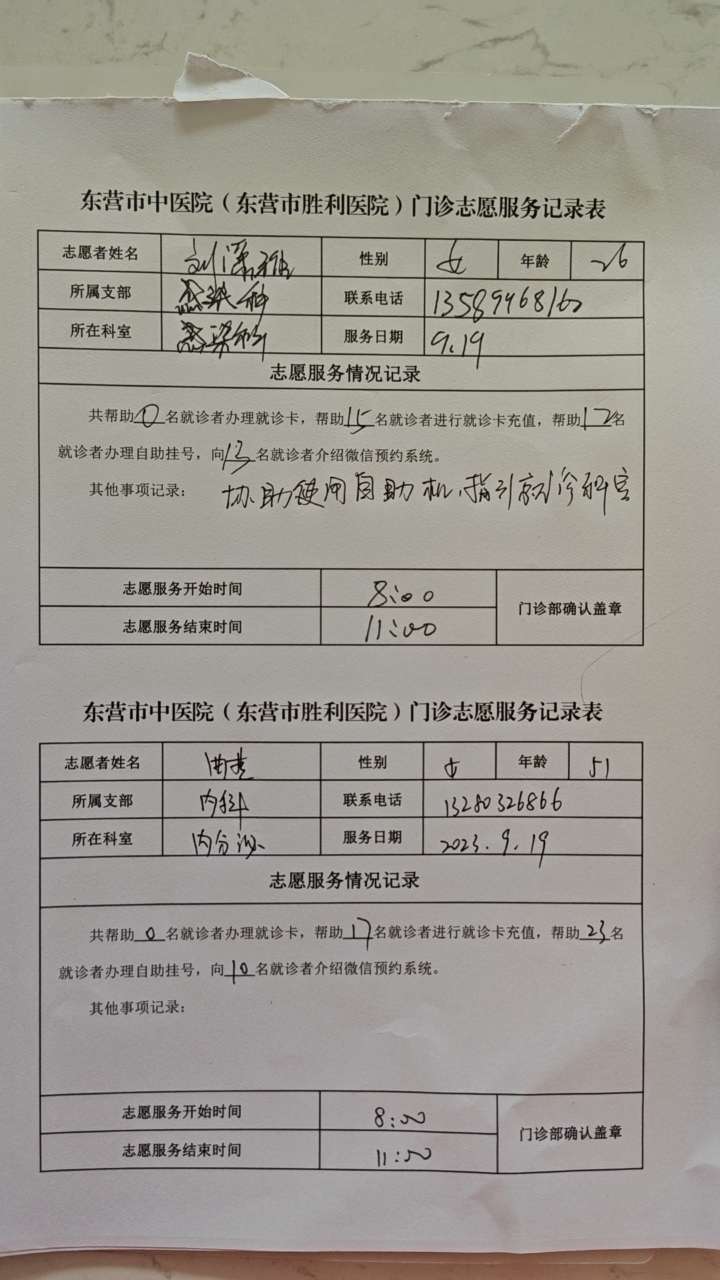 东营市中医院（东营市胜利医院）门诊志愿服务记录表
志愿者姓名 刘 性别 女 年龄 26
所属支部 感染科 联系电话
所在科室 感染科 服务日期 9.19
志愿服务情况记录
共帮助0名就诊者办理就诊卡，帮助15名就诊者进行就诊卡充值，帮助12名
就诊者办理自助挂号，向13名就诊者介绍微信预约系统。
其他事项记录： 协助使用自助机，指引就诊科室
志愿服务开始时间 8:00 门诊部确认盖章
志愿服务结束时间 11:00
东营市中医院（东营市胜利医院）门诊志愿服务记录表
志愿者姓名 性别 女 年龄 51
所属支部 内科 联系电话 13280326866
所在科室 内分泌 服务日期 2023.9.19
志愿服务情况记录
共帮助0名就诊者办理就诊卡，帮助17名就诊者进行就诊卡充值，帮助23名
就诊者办理自助挂号，向10名就诊者介绍微信预约系统。
其他事项记录：
志愿服务开始时间 8:00 门诊部确认盖章
志愿服务结束时间